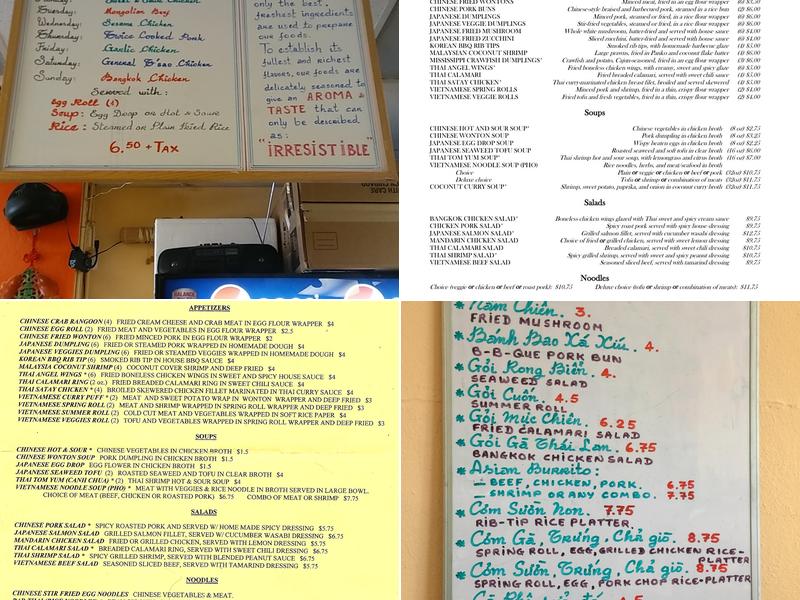 only the best,
Sunday: Sesame Chicken
freshest ingredients
Tuesday: Mongolian Beef
are used to prepare
Wednesday: Sesame Chicken
our foods.
Thursday: Twice Cooked Pork
To establish its
Friday: Garlic Chicken
fullest and richest
Saturday: General Tsao Chicken
flavors, our foods are
Sunday: Bangkok Chicken
delicately seasoned to
Served with:
give an AROMA &
Egg Roll (1)
TASTE that can
Soup: Egg Drop or Hot & Sour
only be described
Rice: Steamed or Plain Fried Rice
as:
6.50 + TAX
"IRRESISTIBLE"
CHINESE PORK BUNS Chinese-style braised and barbecued pork, steamed in a rice bun
JAPANESE DUMPLINGS Minced pork, steamed or fried, in a rice flour wrapper (6) $6.00
JAPANESE VEGGIE DUMPLINGS Stir-fried vegetables, steamed or fried, in a rice flour wrapper (6) $6.00
JAPANESE FRIED MUSHROOM Whole white mushroom, batter-fried and served with house sauce
JAPANESE FRIED ZUCCHINI Sliced zucchini, batter-fried and served with house sauce
KOREAN BBQ RIB TIPS Smoked rib tips, with homemade barbecue glaze
MALAYSIAN COCONUT SHRIMP Large prawns, fried in Panko and coconut flake batter
MISSISSIPPI CRAWFISH DUMPLINGS* Crawfish and potato, Cajun-seasoned, fried in an egg flour wrapper
THAI ANGEL WINGS* Fried boneless chicken wings, with sweet and spicy glaze
THAI CALAMARI Fried breaded calamari, served with sweet chili sauce
THAI SATAY CHICKEN* Thai curry-marinated chicken breast filet, broiled and served skewered
VIETNAMESE SPRING ROLLS Minced pork and shrimp, fried in a thin, crispy flour wrapper (2) $4.00
VIETNAMESE VEGGIE ROLLS Fried tofu and fresh vegetables, fried in a thin, crispy flour wrapper (2) $4.00
Soups
CHINESE HOT AND SOUR SOUP* Chinese vegetables in chicken broth (8 oz) $2.75
CHINESE WONTON SOUP Pork dumpling in chicken broth (8 oz) $3.25
JAPANESE EGG DROP SOUP Wispy beaten eggs in chicken broth (8 oz) $2.25
JAPANESE SEAWEED TOFU SOUP Roasted seaweed and soft tofu in clear broth (16 oz) $6.00
THAI TOM YUM SOUP* Thai shrimp hot and sour soup, with lemongrass and citrus broth (16 oz) $7.00
VIETNAMESE NOODLE SOUP (PHO) Rice noodles, herbs, and meat/seafood in broth
Choice Plain or veggie or chicken or beef or pork (32oz) $10.75
Deluxe choice Tofu or shrimp or combination of meats (32oz) $11.75
COCONUT CURRY SOUP* Shrimp, sweet potato, paprika, and onion in coconut curry broth (32oz) $11.75
Salads
BANGKOK CHICKEN SALAD* Boneless chicken wings glazed with Thai sweet and spicy cream sauce $9.75
CHICKEN PORK SALAD* Spicy roast pork served with spicy house dressing $9.75
JAPANESE SALMON SALAD* Grilled salmon fillet, served with cucumber wasabi dressing $12.75
MANDARIN CHICKEN SALAD Choice of fried or grilled chicken, served with lemon dressing $9.75
THAI CALAMARI SALAD Breaded calamari, served with sweet chili dressing $10.75
THAI SHRIMP SALAD* Spicy grilled shrimp, served with sweet and spicy peanut dressing $10.75
VIETNAMESE BEEF SALAD Seasoned sliced beef, served with tamarind dressing $9.75
Noodles
Choice (veggie or chicken or beef or roast pork): $10.75 Deluxe choice (tofu or shrimp or combination of meats): $11.75
APPETIZERS
CHINESE CRAB RANGOON (4) FRIED CREAM CHEESE AND CRAB MEAT IN EGG FLOUR WRAPPER $4
CHINESE EGG ROLL (2) FRIED MEAT AND VEGETABLES IN EGG FLOUR WRAPPER $2.5
CHINESE FRIED WONTON (6) FRIED MINCED PORK IN EGG FLOUR WRAPPER $2
JAPANESE DUMPLING (6) FRIED OR STEAMED PORK WRAPPED IN HOMEMADE DOUGH $4
JAPANESE VEGGIES DUMPLING (6) FRIED OR STEAMED VEGGIES WRAPPED IN HOMEMADE DOUGH $4
KOREAN BBQ RIB TIP (6) SMOKED RIB TIP IN HOUSE BBQ SAUCE $4
MALAYSIA COCONUT SHRIMP (4) COCONUT COVER SHRIMP AND DEEP FRIED $4
THAI ANGEL WINGS * (6) FRIED BONELESS CHICKEN WINGS IN SWEET AND SPICY HOUSE SAUCE $4
THAI CALAMARI RING (2 oz.) FRIED BREADED CALAMARI RING IN SWEET CHILI SAUCE $4
THAI SATAY CHICKEN * (4) BROILED SKEWERED CHICKEN FILLET MARINATED IN THAI CURRY SAUCE $4
VIETNAMESE CURRY PUFF * (2) MEAT AND SWEET POTATO WRAP IN WONTON WRAPPER AND DEEP FRIED $3
VIETNAMESE SPRING ROLL (2) MEAT AND SHRIMP WRAPPED IN SPRING ROLL WRAPPER AND DEEP FRIED $3
VIETNAMESE SUMMER ROLL (2) COLD CUT MEAT AND VEGETABLES WRAPPED IN SOFT RICE PAPER $4
VIETNAMESE VEGGIES ROLL (2) TOFU AND VEGETABLES WRAPPED IN SPRING ROLL WRAPPER AND DEEP FRIED $3
SOUPS
CHINESE HOT & SOUR * CHINESE VEGETABLES IN CHICKEN BROTH $1.5
CHINESE WONTON SOUP PORK DUMPLING IN CHICKEN BROTH $1.5
JAPANESE EGG DROP EGG FLOWER IN CHICKEN BROTH $1.5
JAPANESE SEAWEED TOFU (2) ROASTED SEAWEED AND TOFU IN CLEAR BROTH $4
THAI TOM YUM (CANH CHUA) * (2) THAI SHRIMP HOT & SOUR SOUP $4
VIETNAMESE NOODLE SOUP (PHO) * MEAT WITH VEGGIES & RICE NOODLE IN BROTH SERVED IN LARGE BOWL.
CHOICE OF MEAT (BEEF, CHICKEN OR ROASTED PORK) $6.75 COMBO OF MEAT OR SHRIMP $7.75
SALADS
CHINESE PORK SALAD * SPICY ROASTED PORK AND SERVED W/ HOME MADE SPICY DRESSING $5.75
JAPANESE SALMON SALAD GRILLED SALMON FILLET, SERVED W/ CUCUMBER WASABI DRESSING $6.75
MANDARIN CHICKEN SALAD FRIED OR GRILLED CHICKEN, SERVED WITH LEMON DRESSING $5.75
THAI CALAMARI SALAD * BREADED CALAMARI RING, SERVED WITH SWEET CHILI DRESSING $6.75
THAI SHRIMP SALAD * SPICY GRILLED SHRIMP, SERVED WITH BLENDED PEANUT SAUCE $6.75
VIETNAMESE BEEF SALAD SEASONED SLICED BEEF, SERVED WITH TAMARIND DRESSING $5.75
NOODLES
CHINESE STIR FRIED EGG NOODLES CHINESE VEGETABLES & MEAT.
* Nấm Chiên. 3.
FRIED MUSHROOM
* Bánh Bao Xá Xíu. 4.
B-B-QUE PORK BUN
* Gỏi Rong Biển. 4.
SEAWEED SALAD
* Gỏi Cuốn. 4.5
SUMMER ROLL
* Gỏi Mực Chiên. 6.25
FRIED CALAMARI SALAD
* Gỏi Gà Thái Lan. 6.75
BANGKOK CHICKEN SALAD
* Asian Burrito:
— BEEF, CHICKEN, PORK. 6.75
— SHRIMP OR ANY COMBO. 7.75
* Cơm Sườn Non. 7.75
RIB-TIP RICE PLATTER.
* Cơm Gà, Trứng, Chả giò. 8.75
SPRING ROLL, EGG, GRILLED CHICKEN RICE-PLATTER
* Cơm Sườn, Trứng, Chả giò. 8.75
SPRING ROLL, EGG, PORK CHOP RICE-PLATTER